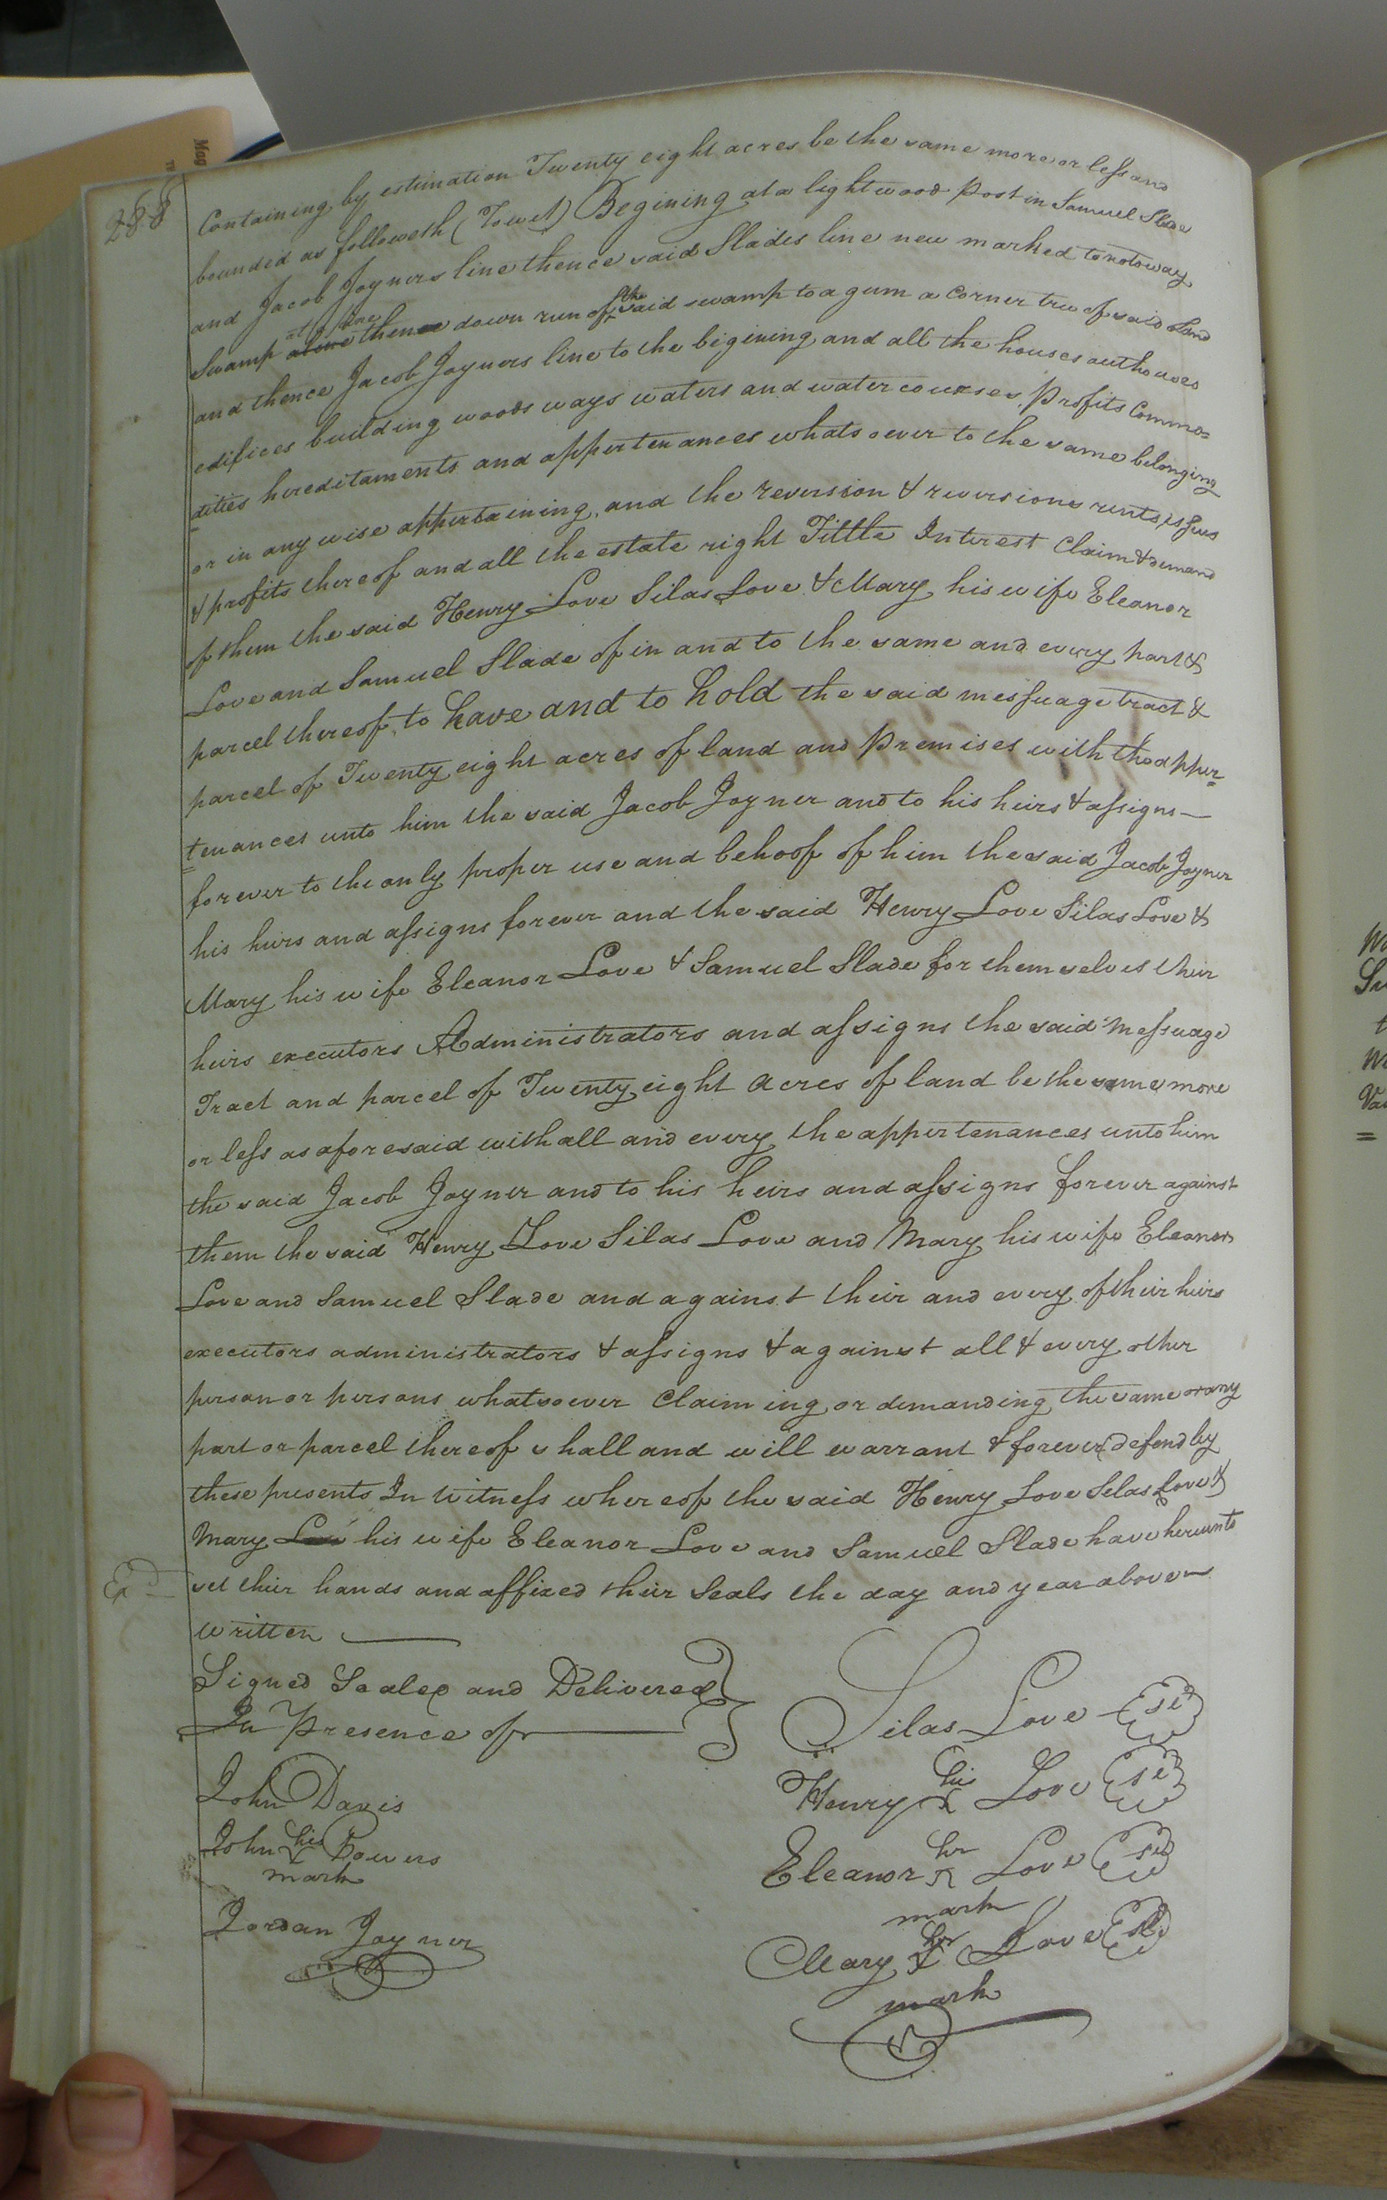 288
Containing by estimation Twenty eight acres be the same more or less and
bounded as followeth (Towit) Begining at a lightwood Post in Samuel Slade
and Jacob Joyners line thence said Slades line new marked to notoway
Swamp above thence down run of the said swamp to a gum a corner tree of said Land
and thence Jacob Joyners line to the begining and all the houses outhouses
edifices building woods ways waters and watercourses Profits Commo=
dities hereditaments and appertenances whatsoever to the same belonging
or in any wise appertaining, and the reversion & reversions rents issues
& profits thereof and all the estate right Tittle Interest Claim & demand
of them the said Henry Love Silas Love & Mary his wife Eleanor
Love and Samuel Slade of in and to the same and every part &
parcel thereof, to have and to hold the said messuage tract &
parcel of Twenty eight acres of land and Premises with the apper=
tenances unto him the said Jacob Joyner and to his heirs & assigns —
forever to the only proper use and behoof of him the said Jacob Joyner
his heirs and assigns forever and the said Henry Love Silas Love &
Mary his wife Eleanor Love & Samuel Slade for themselves their
heirs executors Administrators and assigns the said Messuage
Tract and parcel of Twenty eight Acres of land be the same more
or less as aforesaid with all and every the appertenances unto him
the said Jacob Joyner and to his heirs and assigns forever against
them the said Henry Love Silas Love and Mary his wife Eleanor
Love and Samuel Slade and against their and every of their heirs
executors administrators & assigns & against all & every other
person or persons whatsoever Claiming or demanding the same or any
part or parcel thereof shall and will warrant & forever defend by
these presents In Witness whereof the said Henry Love Silas Love &
Mary his wife Eleanor Love and Samuel Slade have hereunto
set their hands and affixed their Seals the day and year above —
written —
Signed Sealed and Delivered
In Presence of —
Silas Love
John Davis
Henry his Love
John his Bowers
mark
Eleanor her Love
mark
Jordan Joyner
Mary her Love
mark